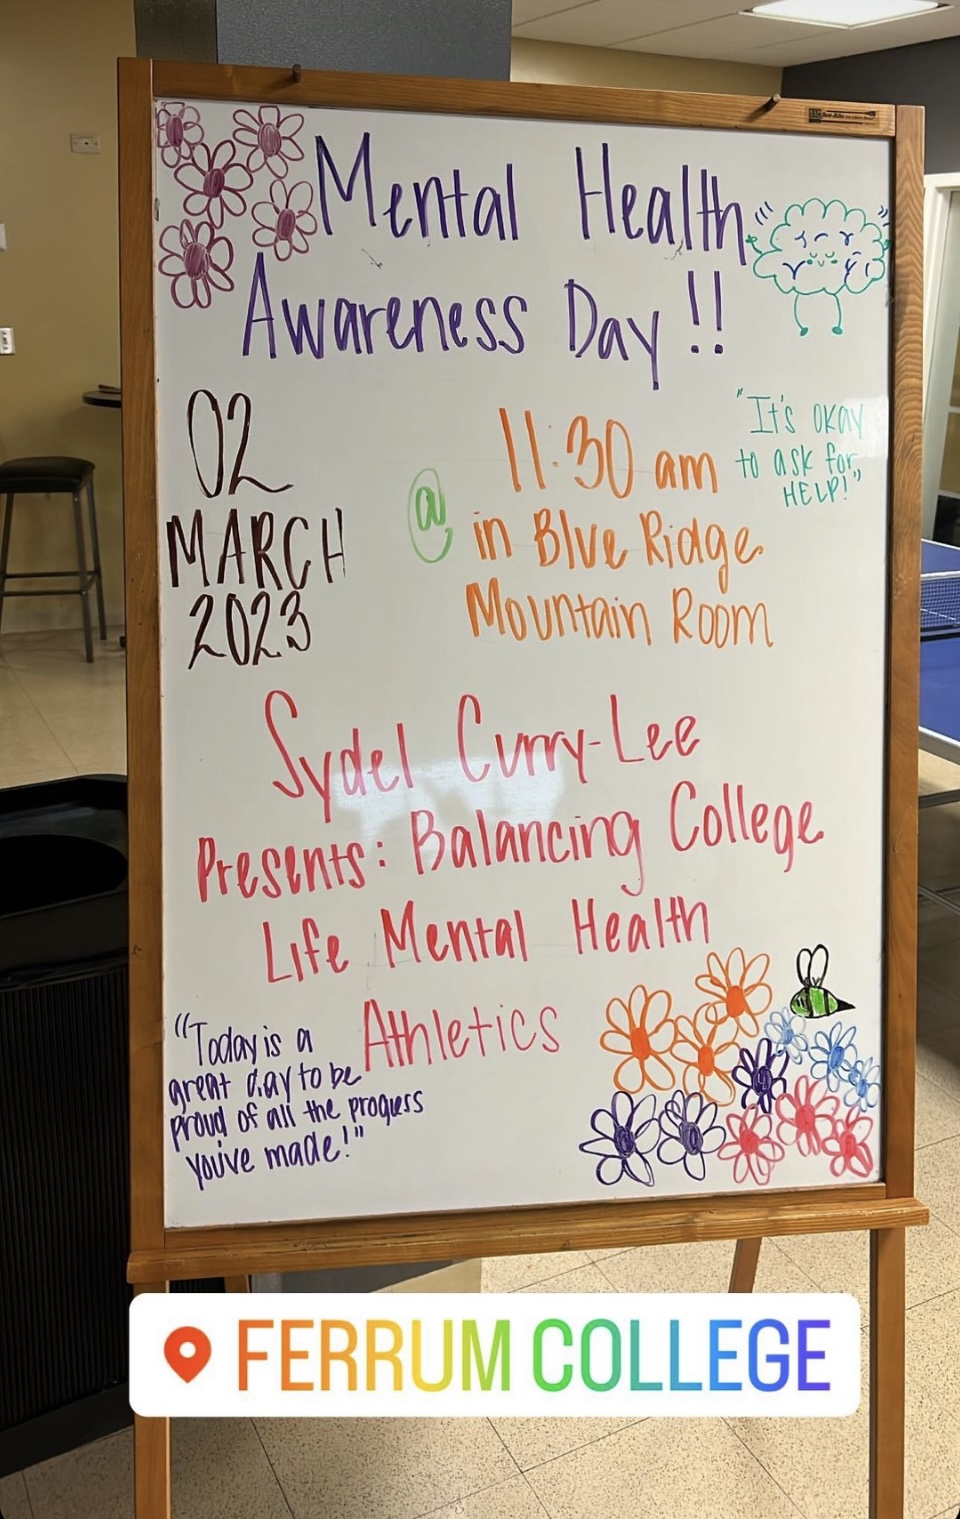 Mental Health
Awareness Day!!
02
MARCH
2023
@
11:30 am
in Blue Ridge
Mountain Room
"It's okay
to ask for
HELP!"
Sydel Curry-Lee
Presents: Balancing College
Life Mental Health
Athletics
"Today is a
great day to be
proud of all the progress
you've made!"
FERRUM COLLEGE